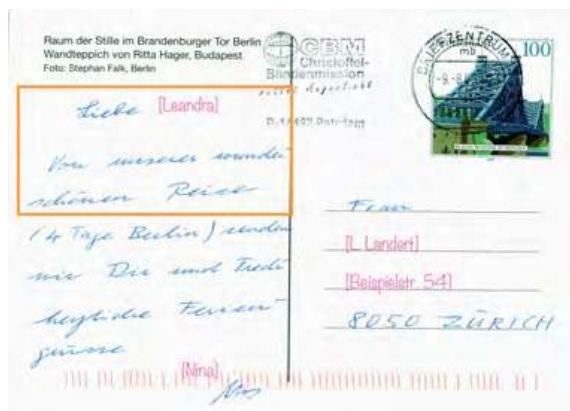 Raum der Stille im Brandenburger Tor Berlin
Wandteppich von Ritta Hager, Budapest
Foto: Stephan Falk, Berlin
CBM
Christoffel-
Blindenmission
BRIEFZENTRUM
mb
100
Liebe [Leandra]
Von unserer wunder
schönen Reise
(4 Tage Berlin) senden
wir Dir und Fredi
herzliche Ferien-
grüsse
[Nina]
Frau
[L. Landert]
[Beispielstr. 54]
8050 ZÜRICH